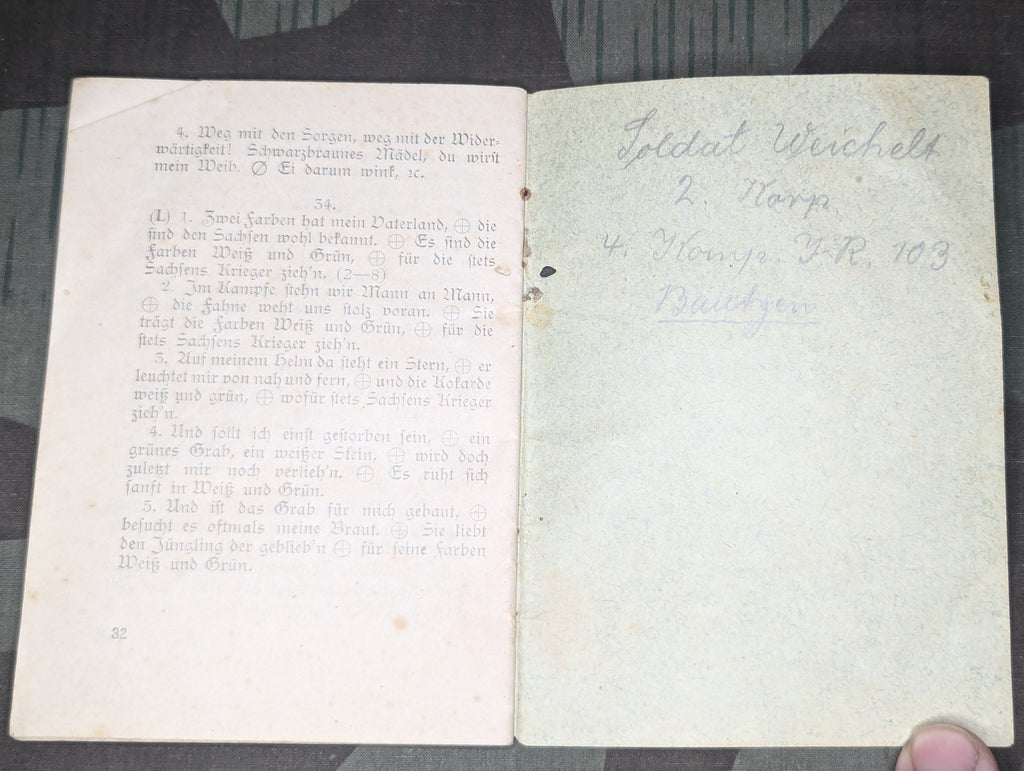 4. Weg mit den Sorgen, weg mit der Wider-
wärtigkeit! Schwarzbraunes Mädel, du wirst
mein Weib. ∅ Ei darum wink, ꝛc.
34.
(L) 1. Zwei Farben hat mein Vaterland, ⊕ die
sind den Sachsen wohl bekannt. ⊕ Es sind die
Farben Weiß und Grün, ⊕ für die stets
Sachsens Krieger zieh'n. (2—8)
2. Im Kampfe stehn wir Mann an Mann,
⊕ die Fahne weht uns stolz voran. ⊕ Sie
trägt die Farben Weiß und Grün, ⊕ für die
stets Sachsens Krieger zieh'n.
3. Auf meinem Helm da steht ein Stern, ⊕ er
leuchtet mir von nah und fern, ⊕ und die Kokarde
weiß und grün, ⊕ wofür stets Sachsens Krieger
zieh'n.
4. Und sollt ich einst gestorben sein, ⊕ ein
grünes Grab, ein weißer Stein, ⊕ wird doch
zuletzt mir noch verlieh'n. ⊕ Es ruht sich
sanft in Weiß und Grün.
5. Und ist das Grab für mich gebaut, ⊕
besucht es oftmals meine Braut. ⊕ Sie liebt
den Jüngling der geblieb'n ⊕ für seine Farben
Weiß und Grün.
32
Soldat Weichelt
2. Korp.
4. Komp. I.R. 103
Bautzen